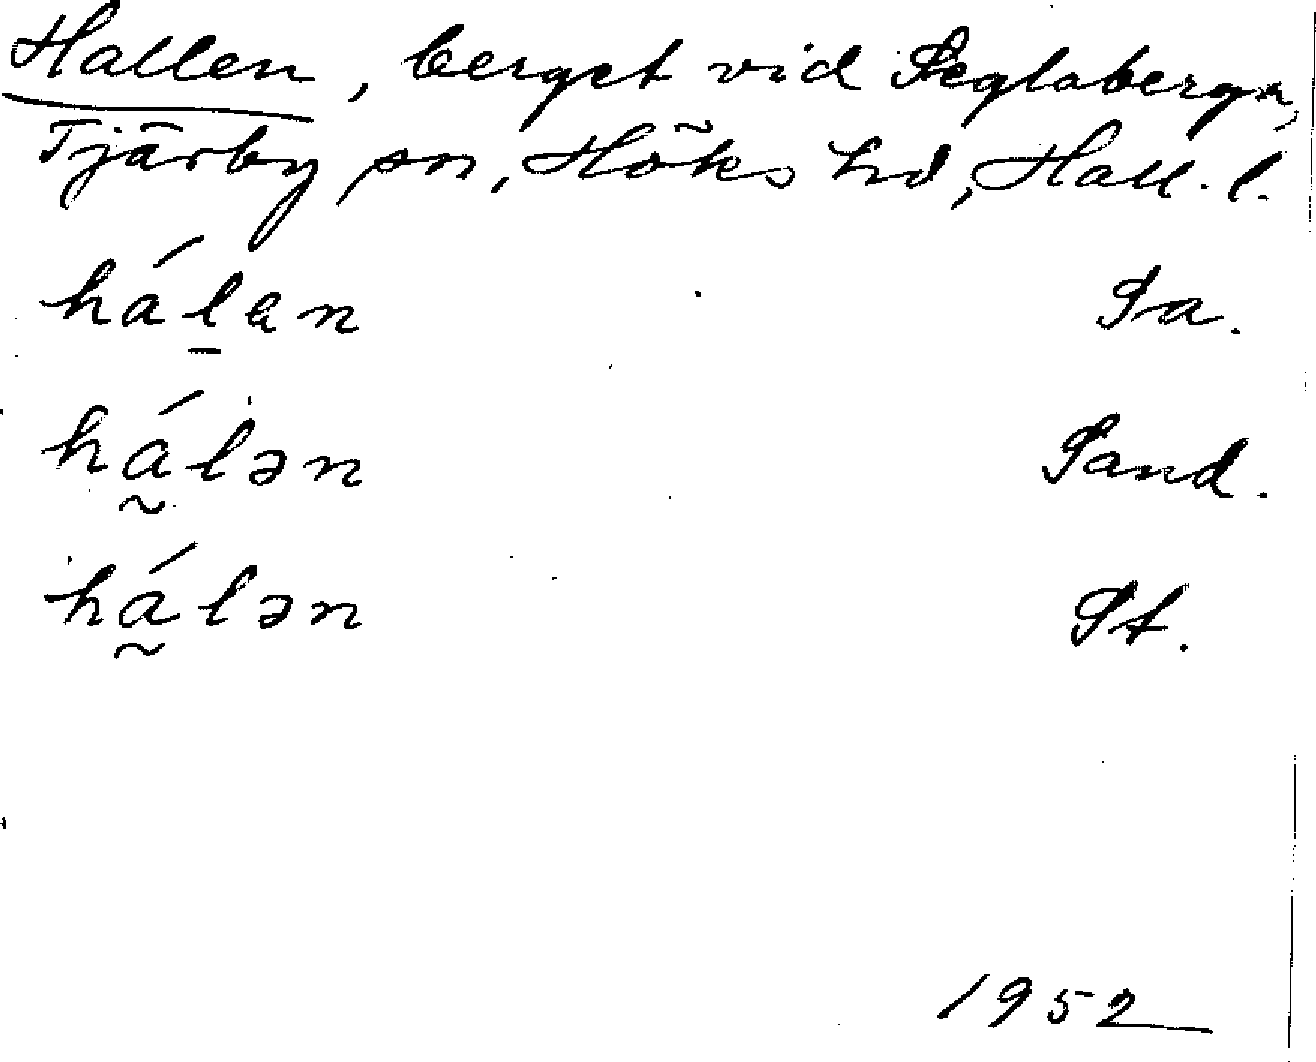 Hallen, berget vid Seglaberga,
Tjärby sn, Höks hd, Hall. l.
há̱lan Sa.
há̰lən Sand.
há̰lən St.
1952